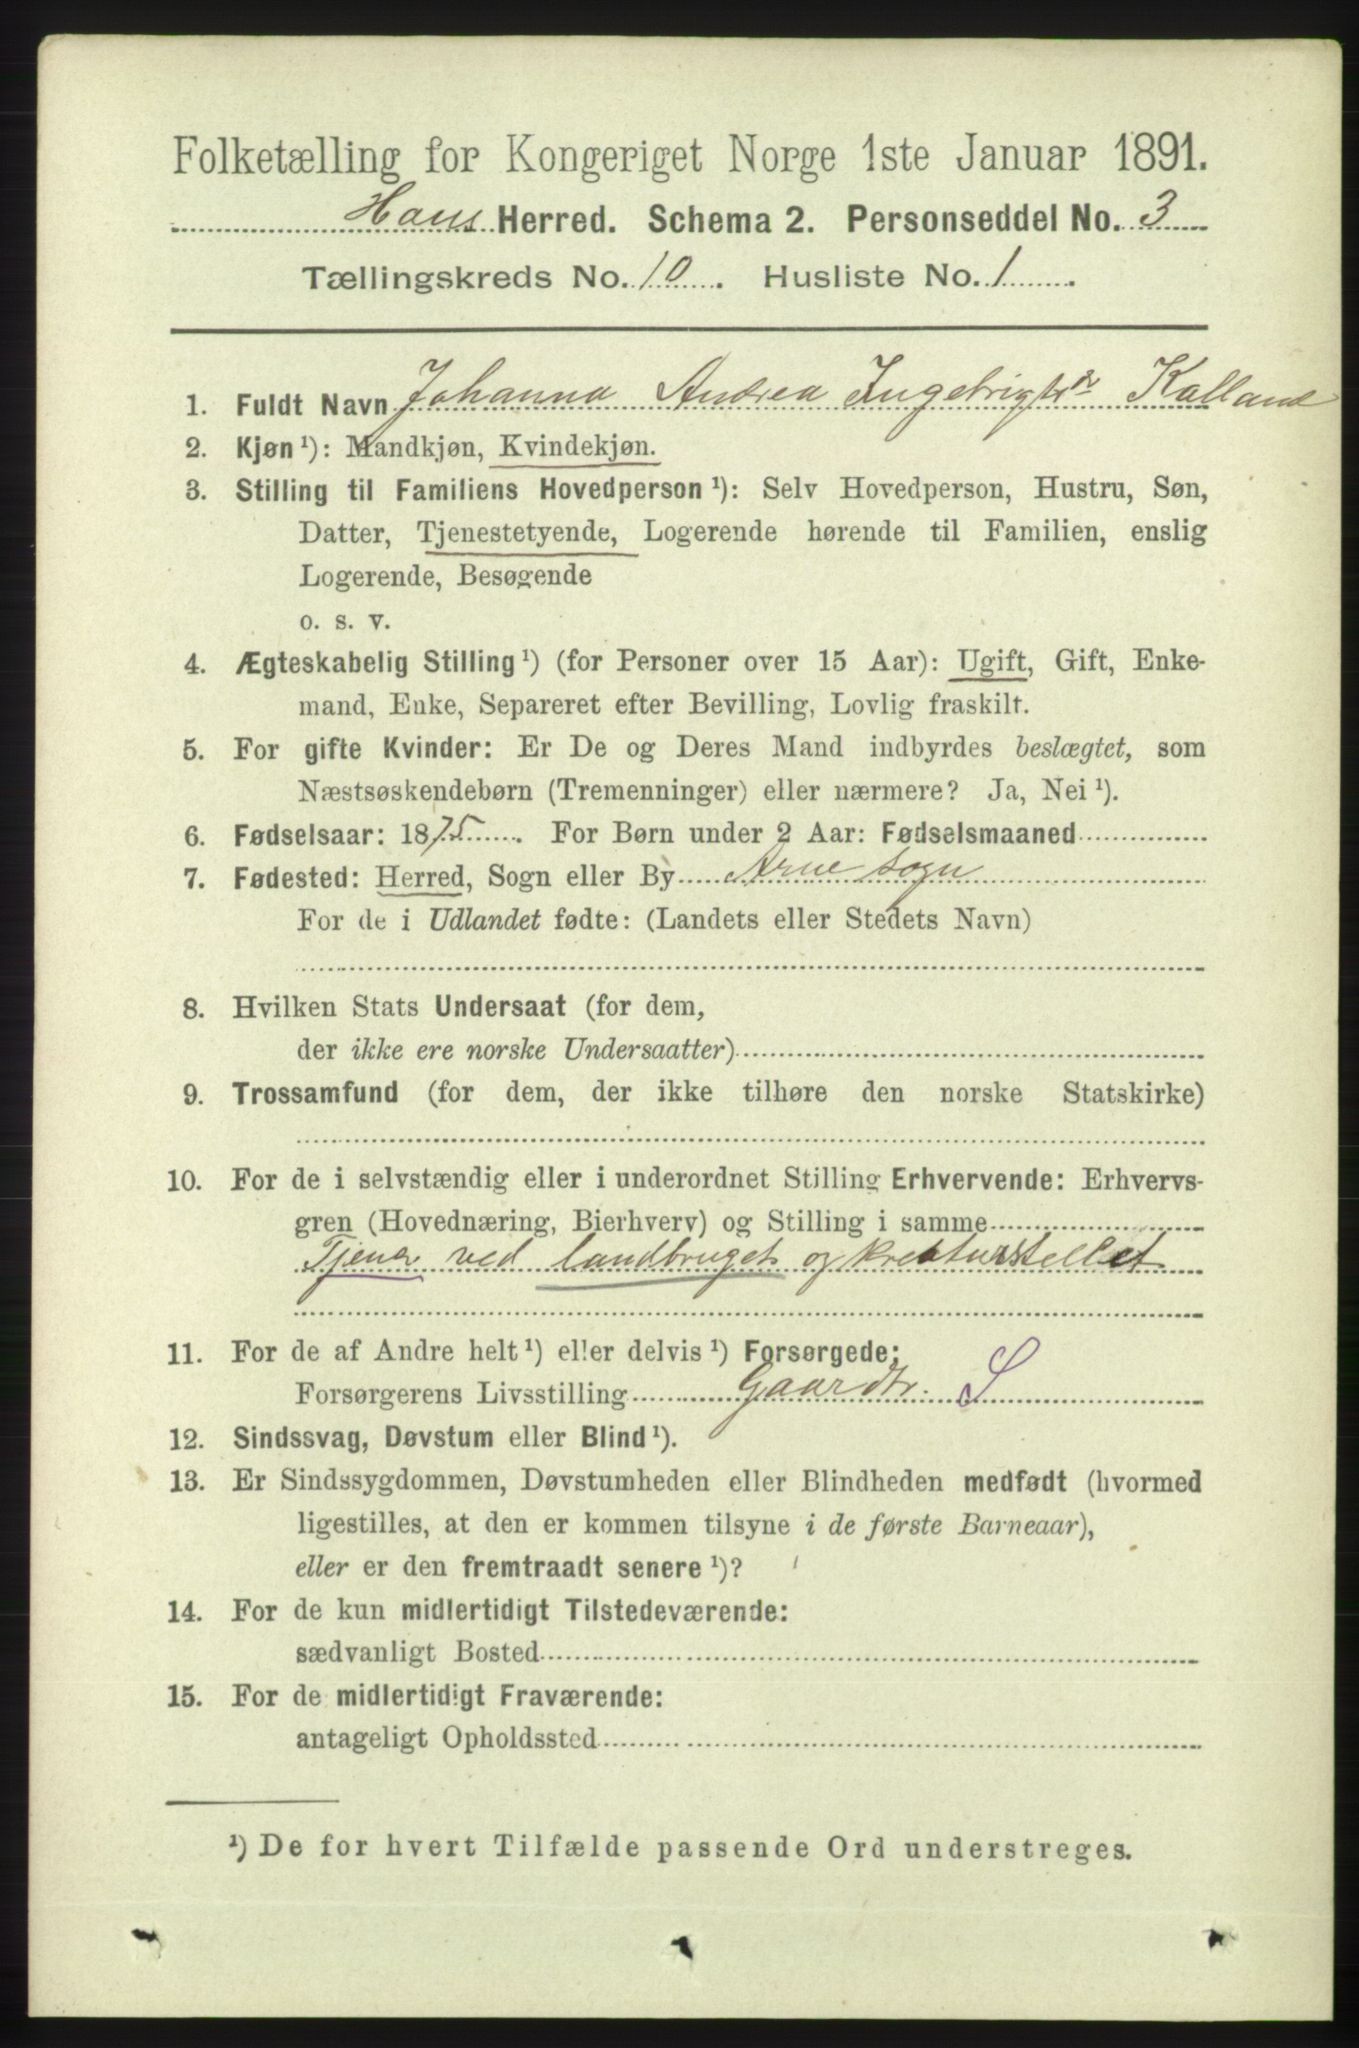 Folketælling for Kongeriget Norge 1ste Januar 1891.
Haus Herred. Schema 2. Personseddel No. 3
Tællingskreds No. 10. Husliste No. 1.
1. Fuldt Navn Johanna Andrea Ingebrigtsdr Kalland
2. Kjøn¹): Mandkjøn, Kvindekjøn.
3. Stilling til Familiens Hovedperson¹): Selv Hovedperson, Hustru, Søn,
Datter, Tjenestetyende, Logerende hørende til Familien, enslig
Logerende, Besøgende
o. s. v.
4. Ægteskabelig Stilling¹) (for Personer over 15 Aar): Ugift, Gift, Enke-
mand, Enke, Separeret efter Bevilling, Lovlig fraskilt.
5. For gifte Kvinder: Er De og Deres Mand indbyrdes beslægtet, som
Næstsøskendebørn (Tremenninger) eller nærmere? Ja, Nei¹).
6. Fødselsaar: 1875. For Børn under 2 Aar: Fødselsmaaned
7. Fødested: Herred, Sogn eller By Arne sogn
For de i Udlandet fødte: (Landets eller Stedets Navn)
8. Hvilken Stats Undersaat (for dem,
der ikke ere norske Undersaatter)
9. Trossamfund (for dem, der ikke tilhøre den norske Statskirke)
10. For de i selvstændig eller i underordnet Stilling Erhvervende: Erhvervs-
gren (Hovednæring, Bierhverv) og Stilling i samme
Tjener ved landbruget og kreaturstellet
11. For de af Andre helt¹) eller delvis¹) Forsørgede:
Forsørgerens Livsstilling Gaardbr. S
12. Sindssvag, Døvstum eller Blind¹).
13. Er Sindssygdommen, Døvstumheden eller Blindheden medfødt (hvormed
ligestilles, at den er kommen tilsyne i de første Barneaar),
eller er den fremtraadt senere¹)?
14. For de kun midlertidigt Tilstedeværende:
sædvanligt Bosted
15. For de midlertidigt Fraværende:
antageligt Opholdssted
¹) De for hvert Tilfælde passende Ord understreges.